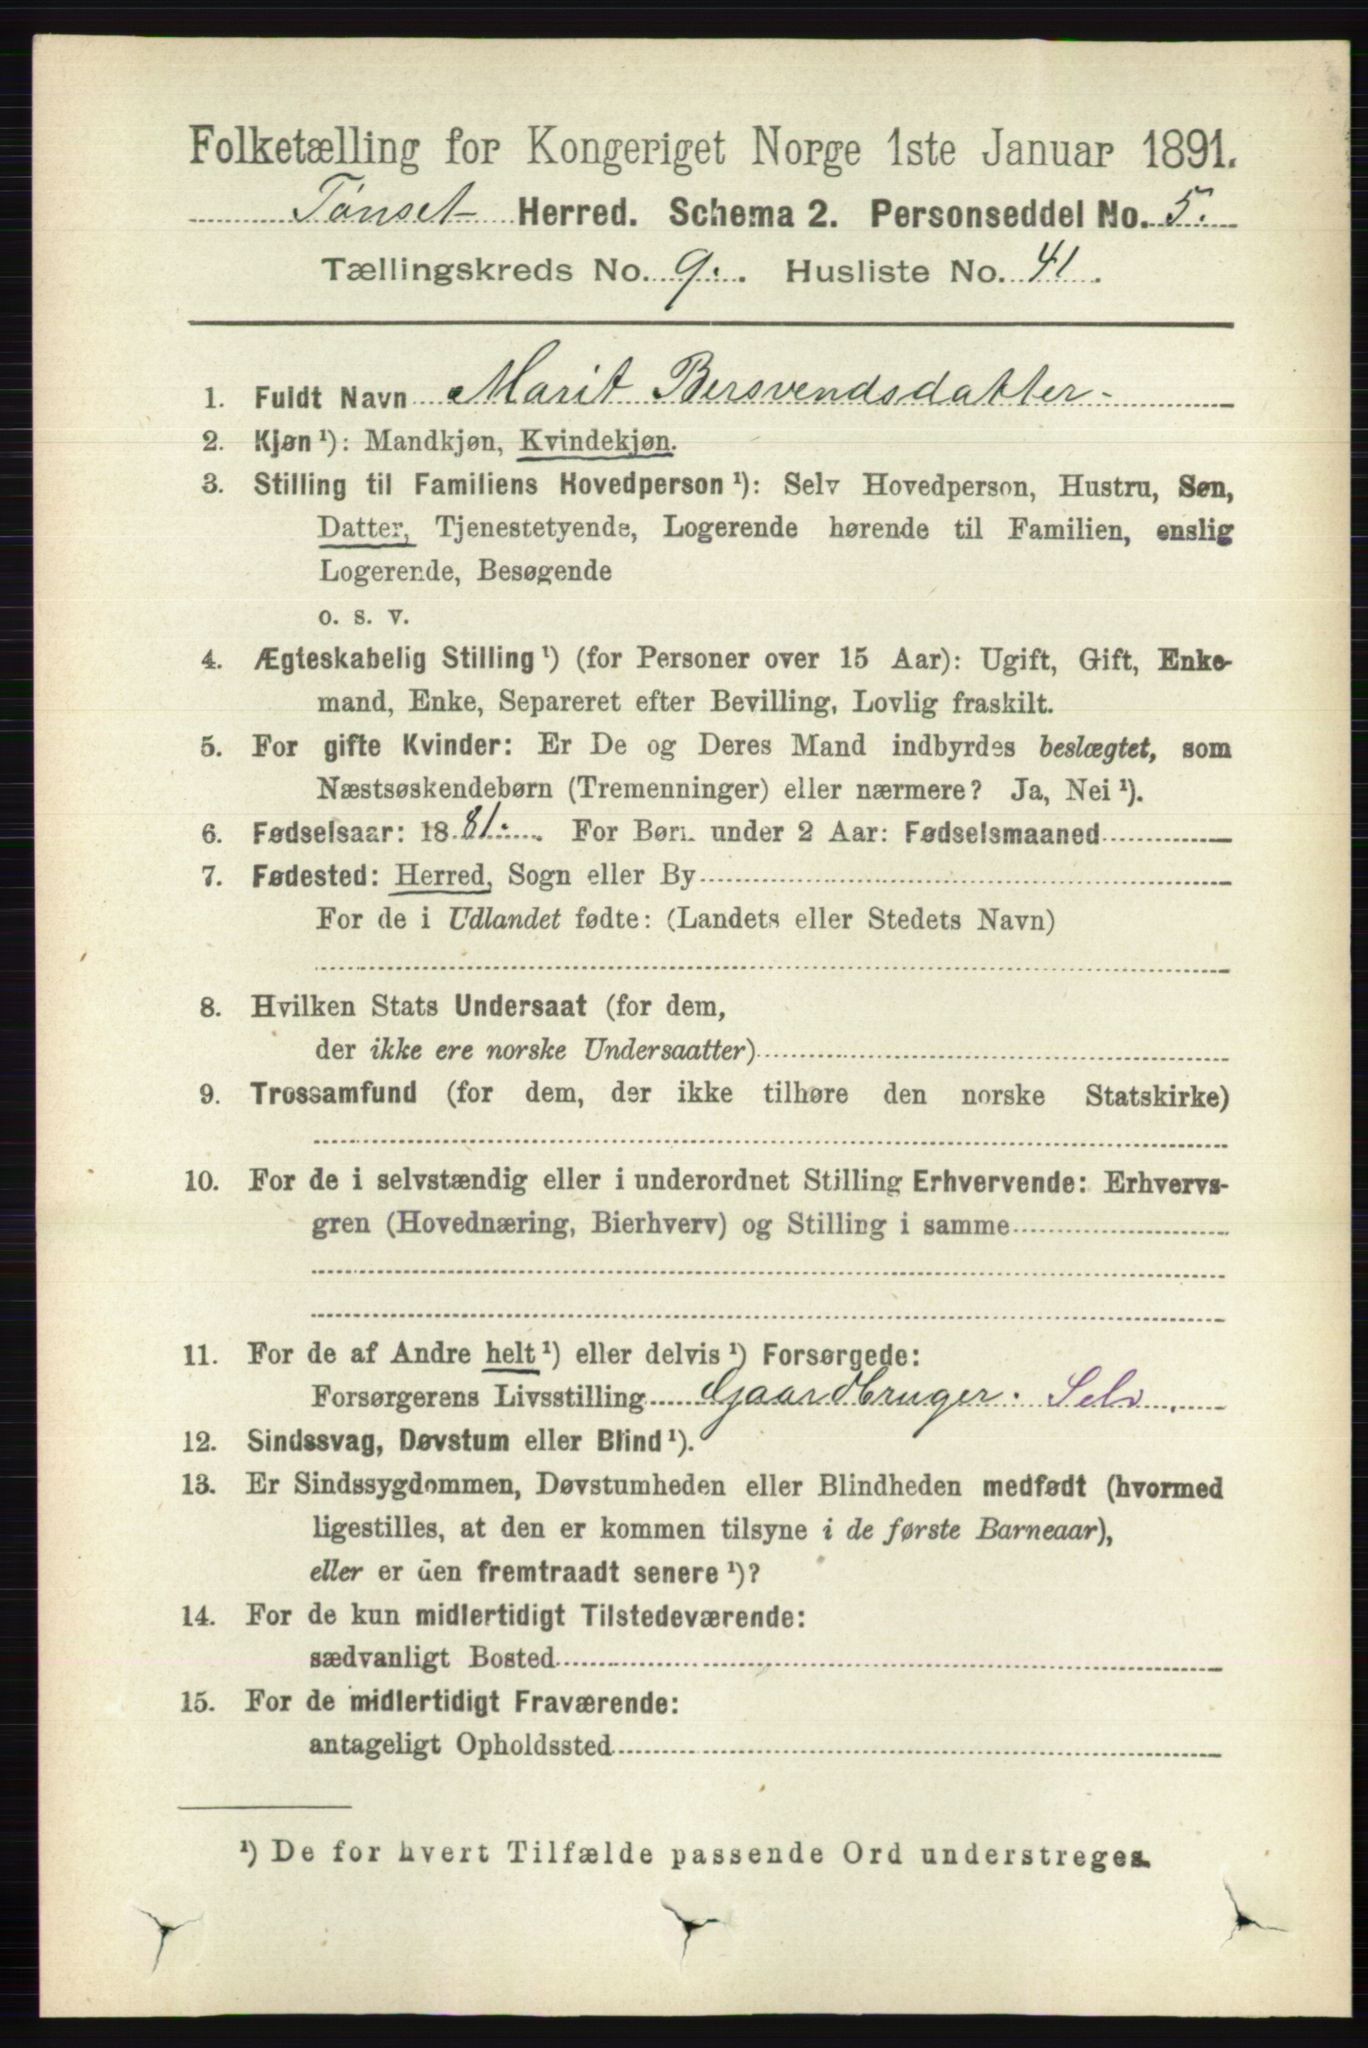 Folketælling for Kongeriget Norge 1ste Januar 1891.
Tønset Herred. Schema 2. Personseddel No. 5.
Tællingskreds No. 9. Husliste No. 41.
1. Fuldt Navn Marit Bersvendsdatter
2. Kjøn ¹): Mandkjøn, Kvindekjøn.
3. Stilling til Familiens Hovedperson ¹): Selv Hovedperson, Hustru, Søn,
Datter, Tjenestetyende, Logerende hørende til Familien, enslig
Logerende, Besøgende
o. s. v.
4. Ægteskabelig Stilling ¹) (for Personer over 15 Aar): Ugift, Gift, Enke-
mand, Enke, Separeret efter Bevilling, Lovlig fraskilt.
5. For gifte Kvinder: Er De og Deres Mand indbyrdes beslægtet, som
Næstsøskendebørn (Tremenninger) eller nærmere? Ja, Nei ¹).
6. Fødselsaar: 1881. For Børn under 2 Aar: Fødselsmaaned
7. Fødested: Herred, Sogn eller By
For de i Udlandet fødte: (Landets eller Stedets Navn)
8. Hvilken Stats Undersaat (for dem,
der ikke ere norske Undersaatter)
9. Trossamfund (for dem, der ikke tilhøre den norske Statskirke)
10. For de i selvstændig eller i underordnet Stilling Erhvervende: Erhvervs-
gren (Hovednæring, Bierhverv) og Stilling i samme
11. For de af Andre helt ¹) eller delvis ¹) Forsørgede:
Forsørgerens Livsstilling Gaardbruger. Selv
12. Sindssvag, Døvstum eller Blind ¹).
13. Er Sindssygdommen, Døvstumheden eller Blindheden medfødt (hvormed
ligestilles, at den er kommen tilsyne i de første Barneaar),
eller er den fremtraadt senere ¹)?
14. For de kun midlertidigt Tilstedeværende:
sædvanligt Bosted
15. For de midlertidigt Fraværende:
antageligt Opholdssted
¹) De for hvert Tilfælde passende Ord understreges.